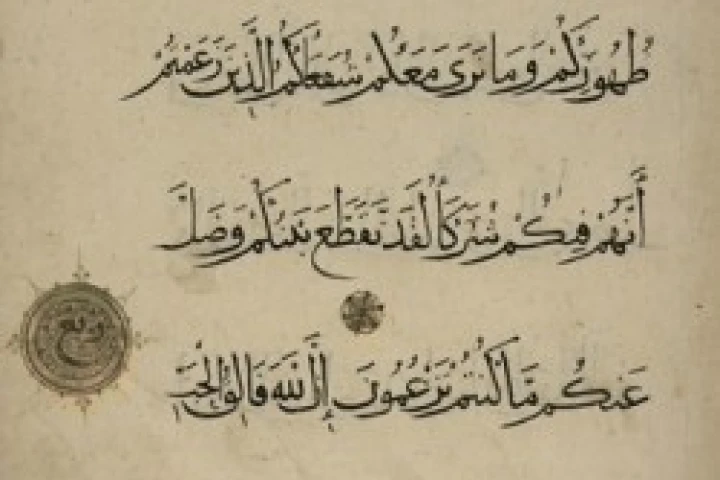 ظُهُورِكُمْ وَمَا نَرَىٰ مَعَكُمْ شُفَعَاءَكُمُ الَّذِينَ زَعَمْتُمْ
أَنَّهُمْ فِيكُمْ شُرَكَاءُ لَقَدْ تَقَطَّعَ بَيْنَكُمْ وَضَلَّ
ربع
عَنْكُمْ مَا كُنْتُمْ تَزْعُمُونَ إِنَّ اللَّهَ فَالِقُ الْحَبِّ